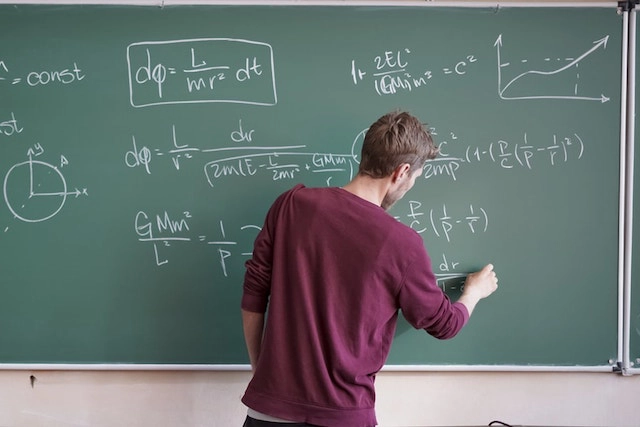 = const
dφ = L/mr² dt
1+ 2EL²/(GM)²m³ = c²
st
y
x
dφ = L/r² dr/√2m(E - L²/2mr² + GMm/r
c²/2mp (1-(P/C(1/P - 1/r)²)
GMm²/L² = 1/P
P/C(1/P - 1/r)
dr